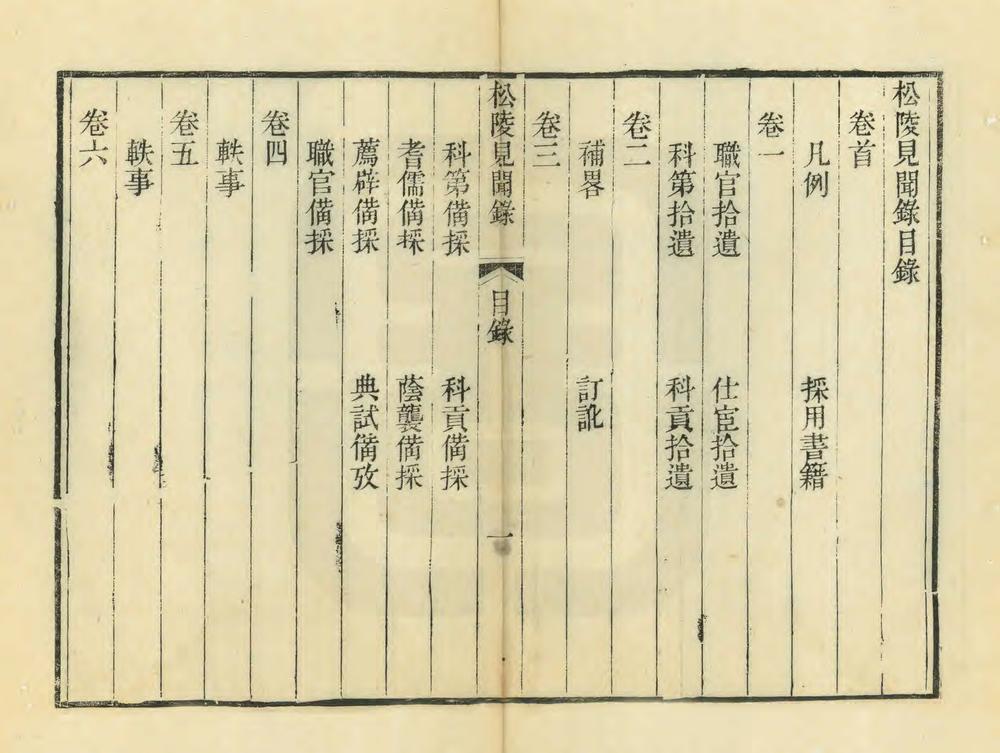 松陵見聞錄目錄
卷首
凡例 採用書籍
卷一
職官拾遺 仕宦拾遺
科第拾遺 科貢拾遺
卷二
補畧 訂訛
卷三
松陵見聞錄 目錄 一
科第備採 科貢備採
耆儒備採 蔭襲備採
薦辟備採 典試備攷
職官備採
卷四
軼事
卷五
軼事
卷六